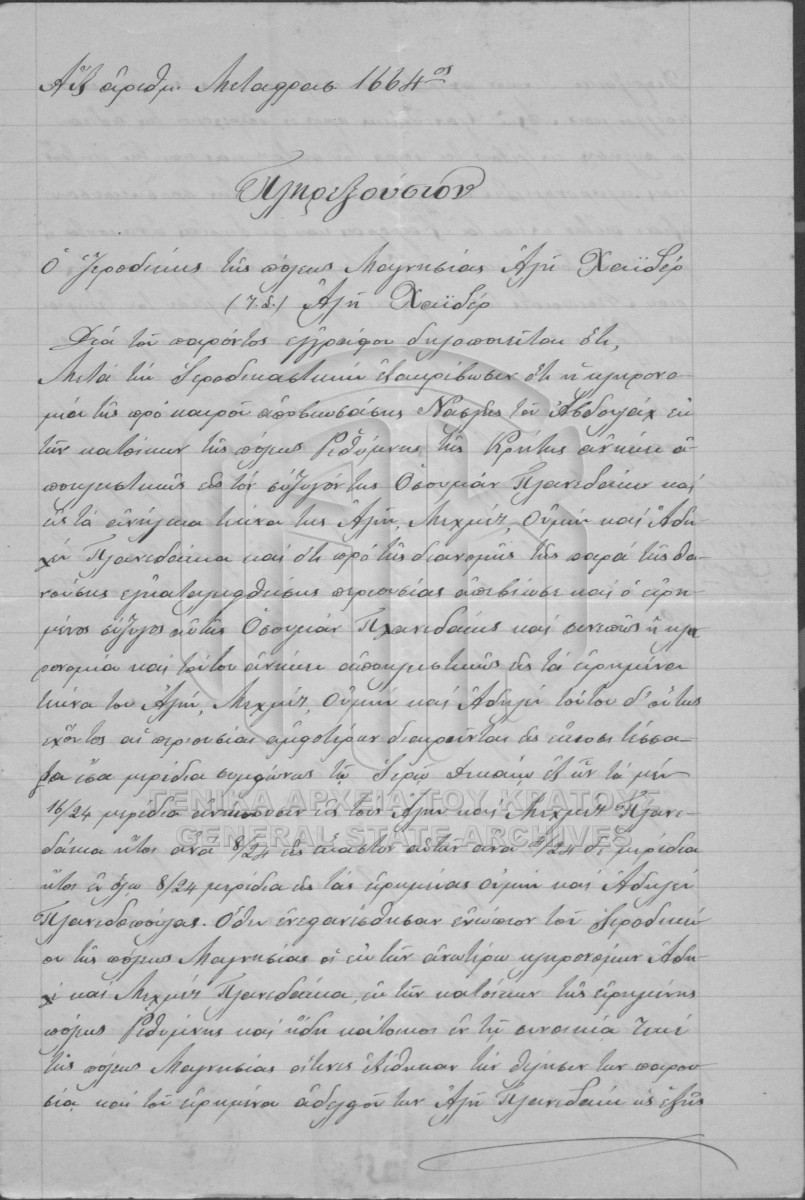 Αὔξ ἀριθμ. Μεταφρασ 1664ος
Πληρεξούσιον
Ὁ Ἱεροδίκης τῆς πόλεως Μαγνησίας Ἀλῆ Χαϊδέρ
(Τ.Σ.) Ἀλῆ Χαϊδέρ
Διά τοῦ παρόντος ἐγγράφου δηλοποιεῖται ὅτι,
Μετά τήν Ἱεροδικαστικήν ἐξακρίβωσιν ὅτι ἡ κληρονο-
μία τῆς πρό καιροῦ ἀποβιωσάσης τοῦ Ἀβδουλάχ ἐκ
τῶν κατοίκων τῆς πόλεως Ρεθύμνης τῆς Κρήτης ἀνήκει ἀ-
ποκλειστικῶς εἰς τόν σύζυγον της Ὀσουμάν Πλανεδάκην καί
εἰς τά ἀνήλικα τέκνα της Ἀλῆν, Μεχμέτ, Οὐμμή καί Ἀδη-
λέ Πλανεδάκια καί ὅτι πρό τῆς διανομῆς τῆς παρά τῆς θα-
νούσης ἐγκαταλειφθείσης περιουσίας ἀπεβίωσε καί ὁ εἰρη-
μένος σύζυγος αὐτῆς Ὀσουμάν Πλανεδάκης καί συνεπῶς ἡ κλη-
ρονομία καί τούτου ἀνήκει ἀποκλειστικῶς εἰς τά εἰρημένα
τέκνα του Ἀλῆν, Μεχμέτ, Οὐμμή καί Ἀδηλέ τούτου δ' οὕτως
ἔχοντος αἱ περιουσίαι ἀμφοτέρων διαιροῦνται εἰς εἴκοσι τέσσα-
ρα ἴσα μερίδια συμφώνως τῷ Ἱερῷ Δικαίῳ ἐξ ὧν τά μέν
16/24 μερίδια ἀνήκουσιν εἰς τούς Ἀλῆν καί Μεχμέτ Πλανε-
δάκια ἤτοι ἀνά 8/24 εἰς ἕκαστον αὐτῶν ἀνά 4/24 δέ μερίδια
ἤτοι ἐν ὅλῳ 8/24 μερίδια εἰς τάς εἰρημένας Οὐμμή καί Ἀδηλέ
Πλανεδοπούλας. Ὅθεν ἐνεφανίσθησαν ἐνώπιον τοῦ Ἱεροδικεί-
ου τῆς πόλεως Μαγνησίας οἱ ἐκ τῶν ἀνωτέρω κληρονόμων Ἀδη-
λέ καί Μεχμέτ Πλανεδάκια, ἐκ τῶν κατοίκων τῆς εἰρημένης
πόλεως Ρεθύμνης καί ἤδη κάτοικοι ἐν τῇ συνοικίᾳ
τῆς πόλεως Μαγνησίας οἵτινες ἐξέθηκαν τήν θέλησίν των παρου-
σίᾳ καί τοῦ εἰρημένου ἀδελφοῦ των Ἀλῆ Πλανεδάκη ὡς ἑξῆς
ΓΕΝΙΚΑ ΑΡΧΕΙΑ ΤΟΥ ΚΡΑΤΟΥΣ
GENERAL STATE ARCHIVES